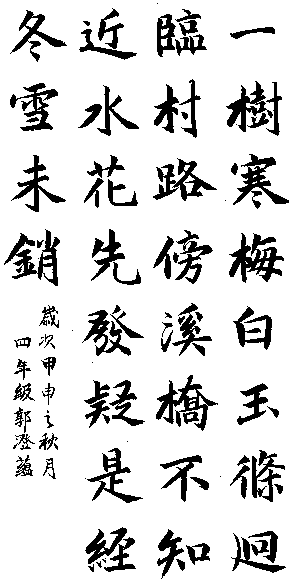 一樹寒梅白玉條迴
臨村路傍溪橋不知
近水花先發疑是經
冬雪未銷
歲次甲申之秋月
四年級郭澄蘊